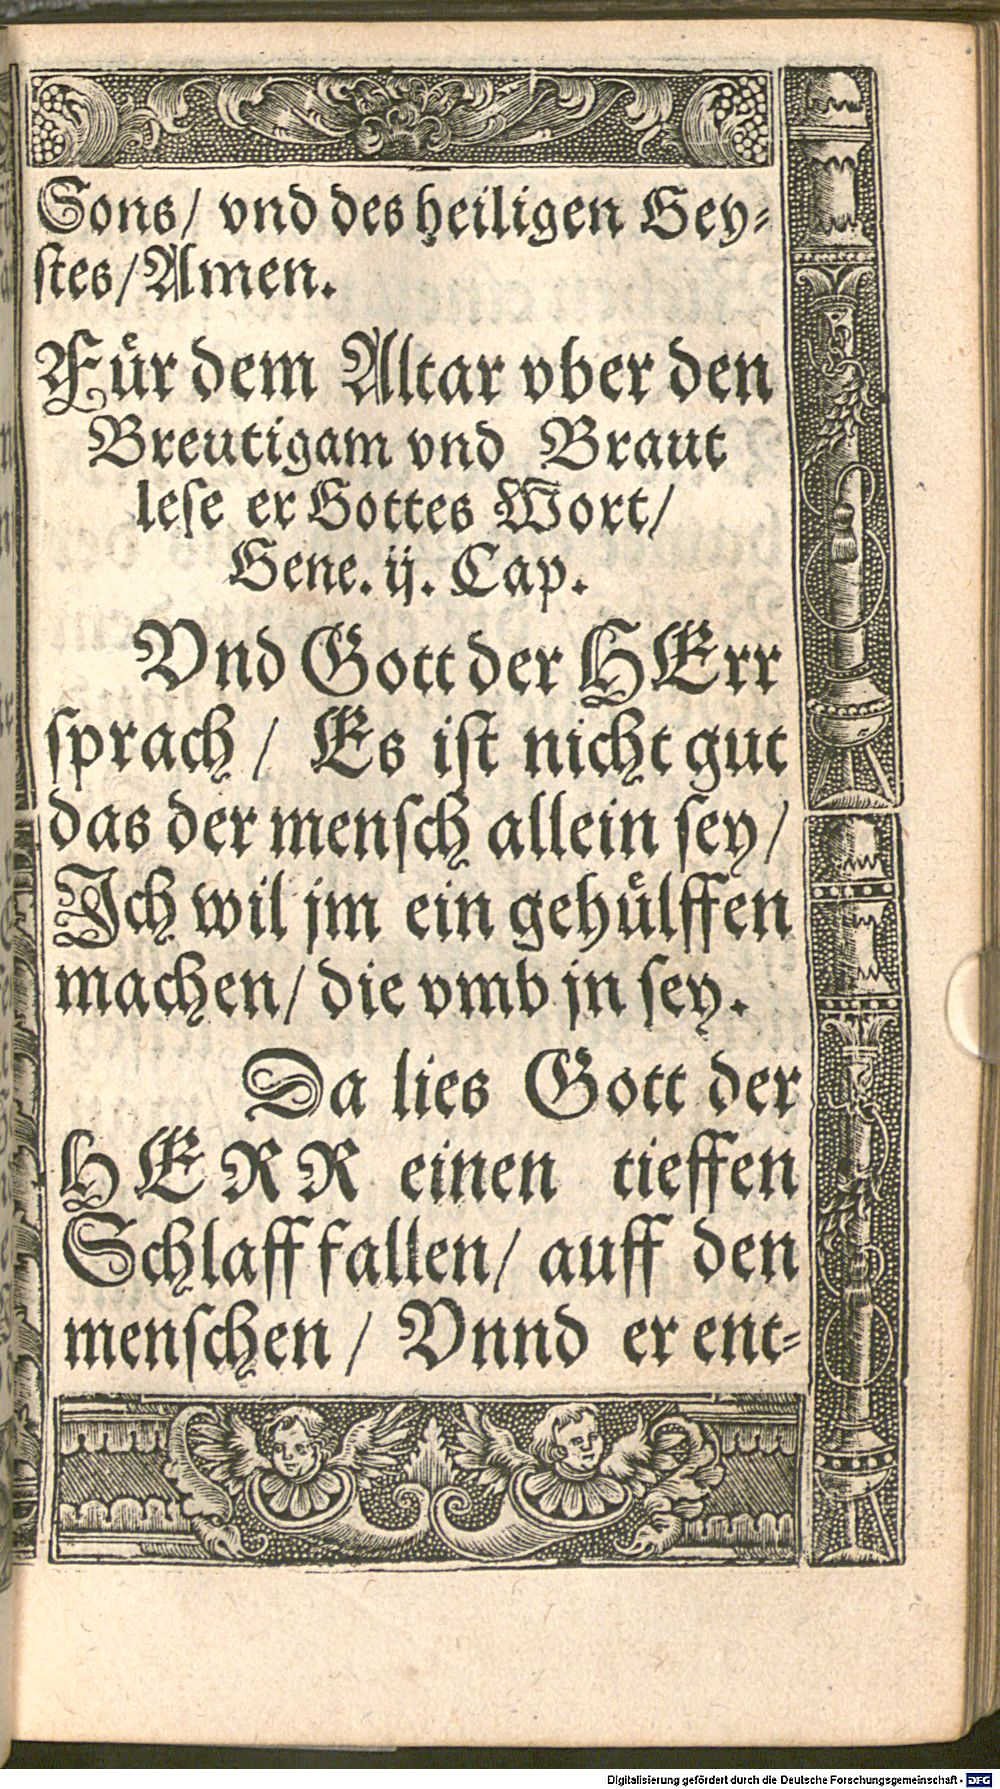 Sons/ vnd des heiligen Gey-
stes/ Amen.
Für dem Altar vber den
Breutigam vnd Braut
lese er Gottes Wort/
Gene. ij. Cap.
Vnd Gott der HErr
sprach / Es ist nicht gut
das der mensch allein sey/
Ich wil jm ein gehülffen
machen/ die vmb jn sey.
Da lies Gott der
HERR einen tieffen
Schlaff fallen/ auff den
menschen / Vnnd er ent-
Digitalisierung gefördert durch die Deutsche Forschungsgemeinschaft - DFG